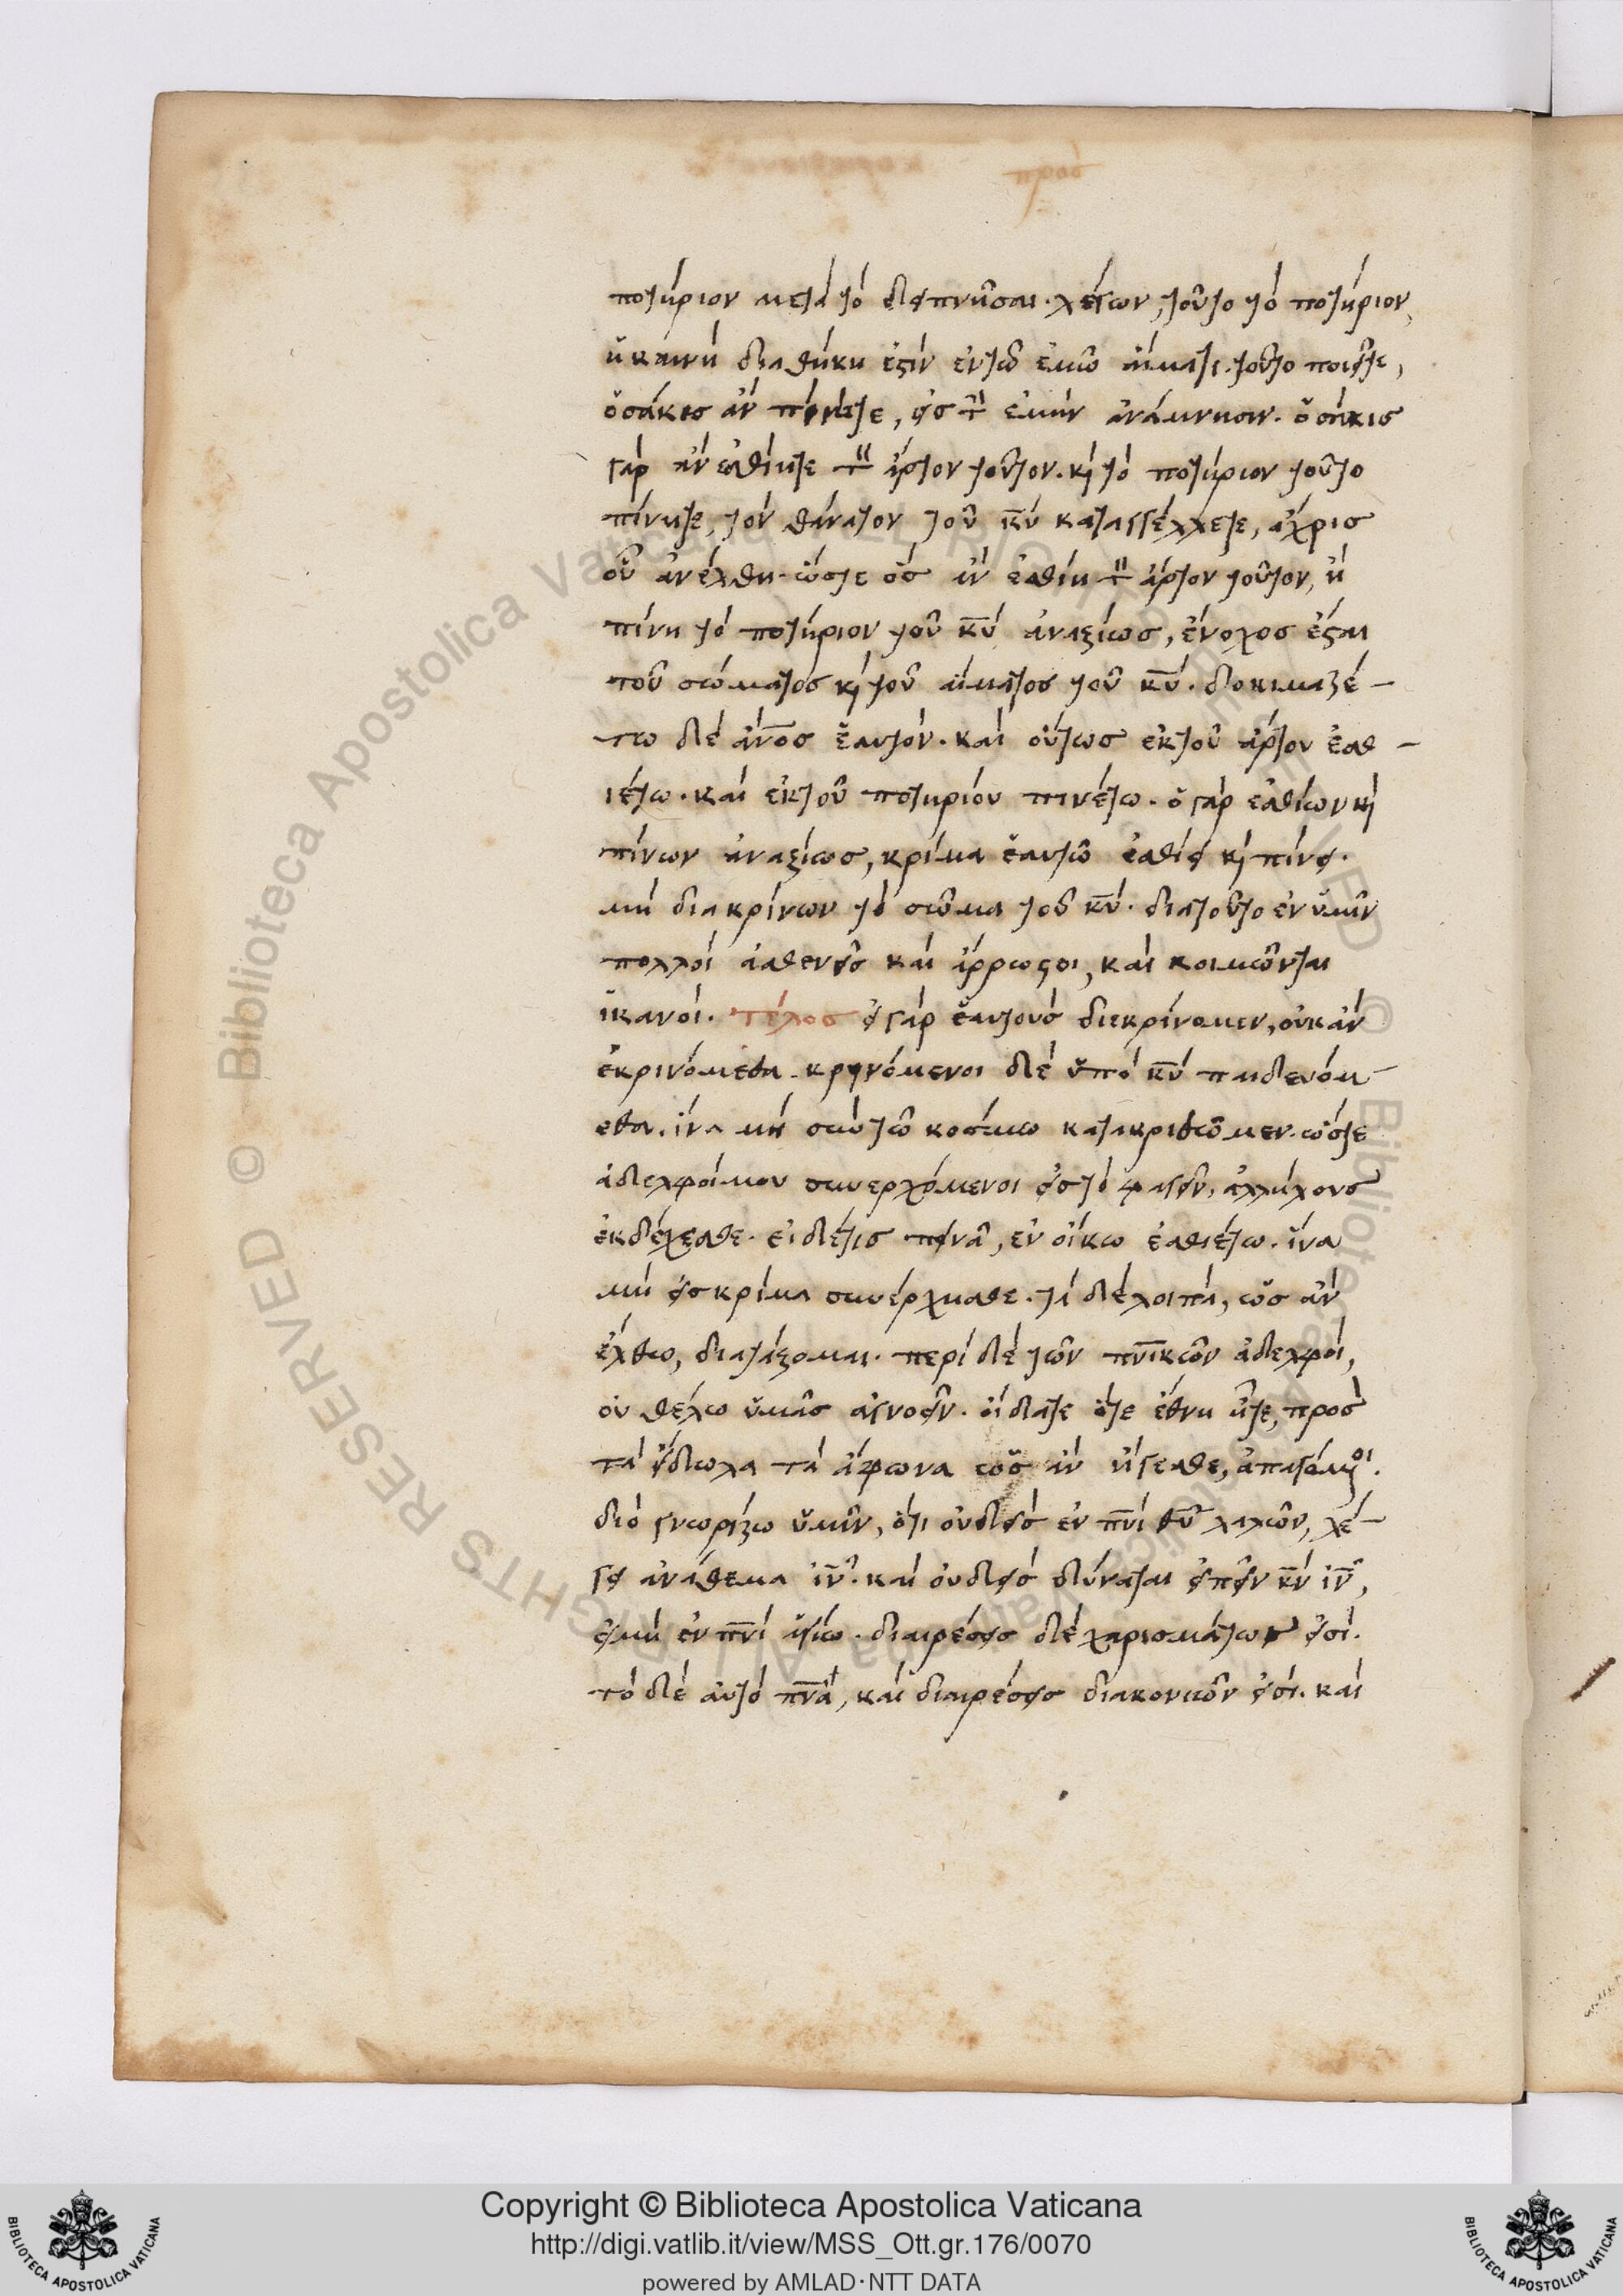 ποτήριον μετὰ τὸ δειπνῆσαι. λέγων, τοῦτο τὸ ποτήριον,
ἡ καινὴ διαθήκη ἐστὶν ἐν τῶ ἐμῶ αἵματι. τοῦτο ποιεῖτε,
ὁσάκις ἂν πίνητε, εἰς τὴν ἐμὴν ἀνάμνησιν. ὁσάκις
γὰρ ἂν ἐσθίητε τὸν ἄρτον τοῦτον. κὶ τὸ ποτήριον τοῦτο
πίνητε, τὸν θάνατον τοῦ κ̅υ̅ καταγγέλλετε, ἄχρις
οὗ ἂν ἔλθη. ὥστε ὃς ἂν ἐσθίη τὸν ἄρτον τοῦτον, ἢ
πίνη τὸ ποτήριον τοῦ κ̅υ̅ ἀναξίως, ἔνοχος ἔσται
τοῦ σώματος κὶ τοῦ αἵματος τοῦ κ̅υ̅. δοκιμαζέ-
τω δὲ ἄν̅ο̅ς ἑαυτόν. καὶ οὕτως ἐκ τοῦ ἄρτου ἐσθ-
ιέτω. καὶ ἐκ τοῦ ποτηρίου πινέτω. ὁ γὰρ ἐσθίων κὶ
πίνων ἀναξίως, κρίμα ἑαυτῶ ἐσθίει κὶ πίνει.
μὴ διακρίνων τὸ σῶμα τοῦ κ̅υ̅. διατοῦτο ἐν ὑμῖν
πολλοὶ ἀσθενεῖς καὶ ἄρρωστοι, καὶ κοιμῶνται
ἱκανοί. τέλος εἰ γὰρ ἑαυτοὺς διεκρίνομεν, οὐκ ἂν
ἐκρινόμεθα. κρινόμενοι δὲ ὑπὸ κ̅υ̅ παιδευόμ-
εθα. ἵνα μὴ σὺν τῶ κόσμω κατακριθῶμεν. ὥστε
ἀδελφοί μου συνερχόμενοι εἰς τὸ φαγεῖν, ἀλλήλους
ἐκδέχεσθε. εἰ δέ τις πεινᾶ, ἐν οἴκω ἐσθιέτω. ἵνα
μὴ εἰς κρίμα συνέρχησθε. τὰ δὲ λοιπὰ, ὡς ἂν
ἔλθω, διατάξομαι. περὶ δὲ τῶν πν̅ικῶν ἀδελφοί,
οὐ θέλω ὑμᾶς ἀγνοεῖν. οἴδατε ὅτε ἔθνη ἦτε, προς
τὰ εἴδωλα τὰ ἄφωνα ὡς ἂν ἤγεσθε, ἀπαγόμενοι.
διὸ γνωρίζω ὑμῖν, ὅτι οὐδεὶς ἐν π̅ν̅ι θ̅υ̅ λαλῶν, λέ-
γει ἀνάθεμα ι̅ν̅. καὶ οὐδεὶς δύναται εἰπεῖν κ̅ν̅ ι̅ν̅,
εἰ μὴ ἐν π̅ν̅ι ἁγίω. διαιρέσεις δὲ χαρισμάτων εἰσί.
τὸ δὲ αὐτὸ π̅ν̅α, καὶ διαιρέσεις διακονιῶν εἰσί. καὶ
Copyright © Biblioteca Apostolica Vaticana
http://digi.vatlib.it/view/MSS_Ott.gr.176/0070
powered by AMLAD·NTT DATA